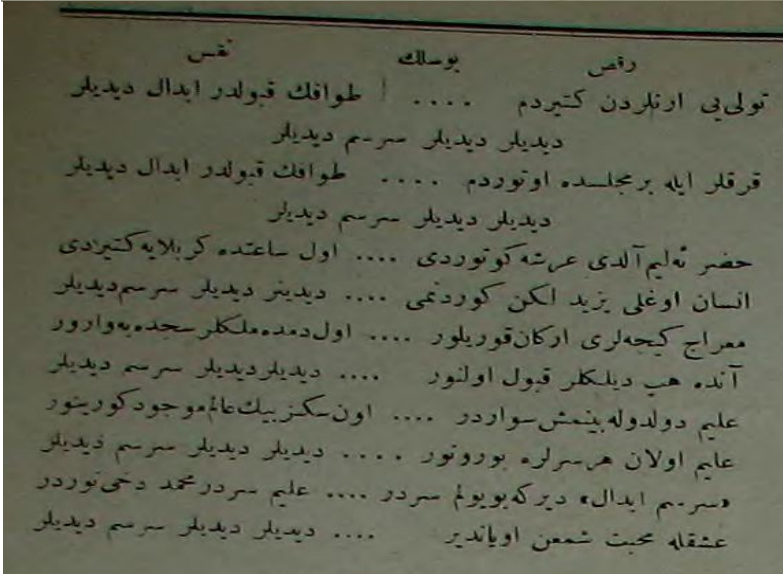 رقص بوسلك نفس
تولی‌یی ارنلردن كتیردم .... طوافك قبولدر ابدال دیدیلر
دیدیلر دیدیلر سرسم دیدیلر
قرقلر ایله بر مجلسده اوتوردم .... طوافك قبولدر ابدال دیدیلر
دیدیلر دیدیلر سرسم دیدیلر
حضر ئه‌لیم آلدی عرشه كوتوردی .... اول ساعتده كربلایه كتیردی
انسان اوغلی یزید لكن كوردنمی .... دیدیلر دیدیلر سرسم دیدیلر
معراج كیجه‌لری اركان قوریلور .... اول دمده ملكلر سجده‌یه وارور
آنده هب دیلكلر قبول اولنور .... دیدیلر دیدیلر سرسم دیدیلر
علیم دولدوله بینمش سواردر .... اون سكز بیك عالم موجود كورینور
علیم اولان هر سرلره بورونور .... دیدیلر دیدیلر سرسم دیدیلر
«سرسم ابدال» دیر كه بویولم سردر .... علیم سردر محمد دخی نوردر
عشقله محبت شمعن اویاندیر .... دیدیلر دیدیلر سرسم دیدیلر